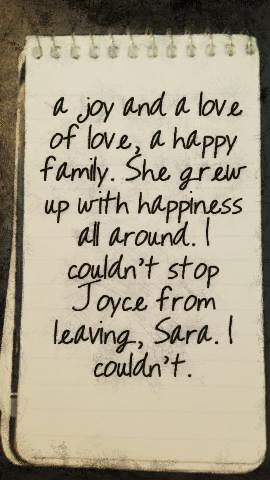 a joy and a love
of love, a happy
family. She grew
up with happiness
all around. I
couldn't stop
Joyce from
leaving, Sara. I
couldn't.